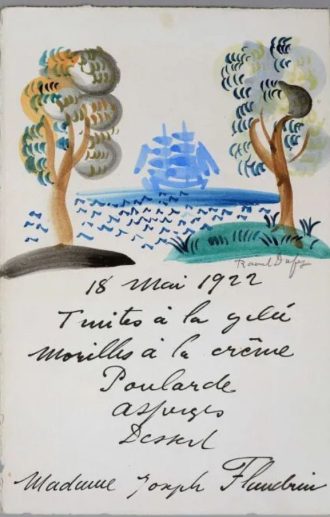 Raoul Dufy
18 Mai 1922
Truites à la gelée
Morilles à la crême
Poularde
Asperges
Dessert
Madame Joseph Flandrin